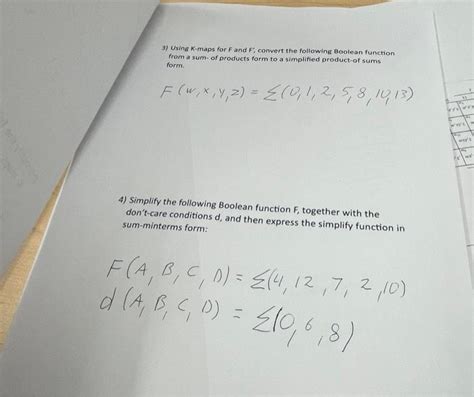 3) Using K-maps for F and F', convert the following Boolean function
from a sum- of products form to a simplified product-of sums
form.
F(w,x,y,z) = Σ(0,1,2,5,8,10,13)
4) Simplify the following Boolean function F, together with the
don't-care conditions d, and then express the simplify function in
sum-minterms form:
F(A, B, C, D) = Σ(4,12,7,2,10)
d(A, B, C, D) = Σ(0,6,8)